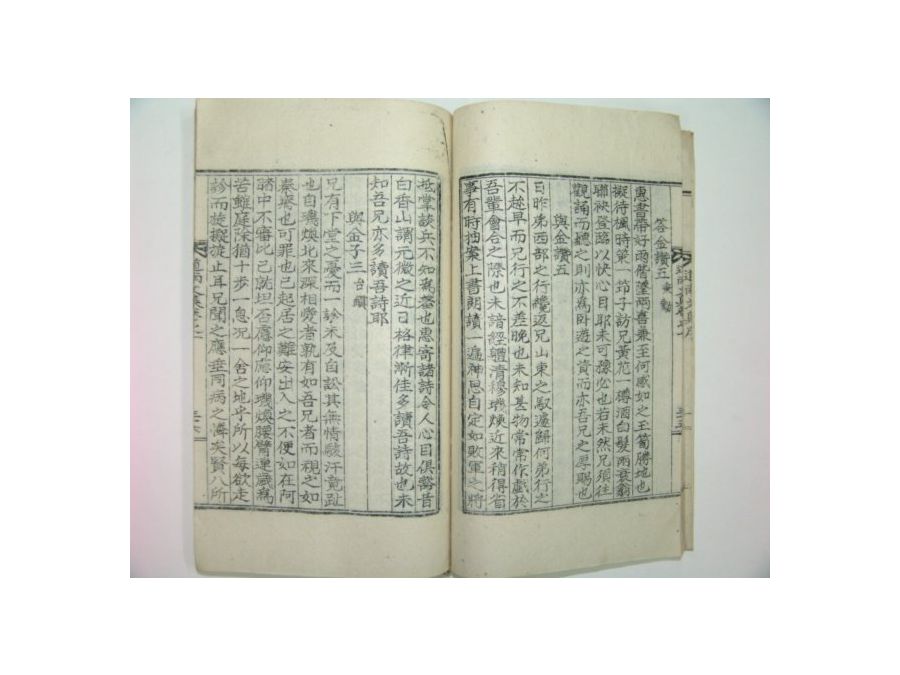 答金讚五
惠書帶好雨舊墜兩喜兼至何感如之王簡勝地也
擬待楓時策一笻子訪兄黃花一樽酒白髮兩衰翁
聯袂登臨以快心目耶未可豫必也若未然兄須往
觀誦而聽之則亦爲臥遊之資而亦吾兄之厚賜也
與金讚五
日昨弟西部之行纔返兄山東之馭遽歸何弟行之
不趁早而兄行之不差晚也未知甚物常常作戱於
吾輩會合之際也未諳經體淸穆璣煥近來稍得省
事有時抽案上書朗讀一遍神思自定如敗軍之將
抵掌談兵不知爲羞也惠寄諸詩令人心目俱豁昔
白香山謂元微之近日格律漸佳多讀吾詩故也未
知吾兄亦多讀吾詩耶
與金子三
兄有下堂之憂而一診未及自訟其無情駭汗竟趾
也自璣煥北來深相勞者孰有如吾兄者而視之如
秦瘠也可罪也已起居之難安出入之不便如在阿
睹中不審比已就坦否
苦雖庭除猶十步一息況一舍之地乎所以每欲走
診而旋擬旋止耳兄聞之應垂同病之